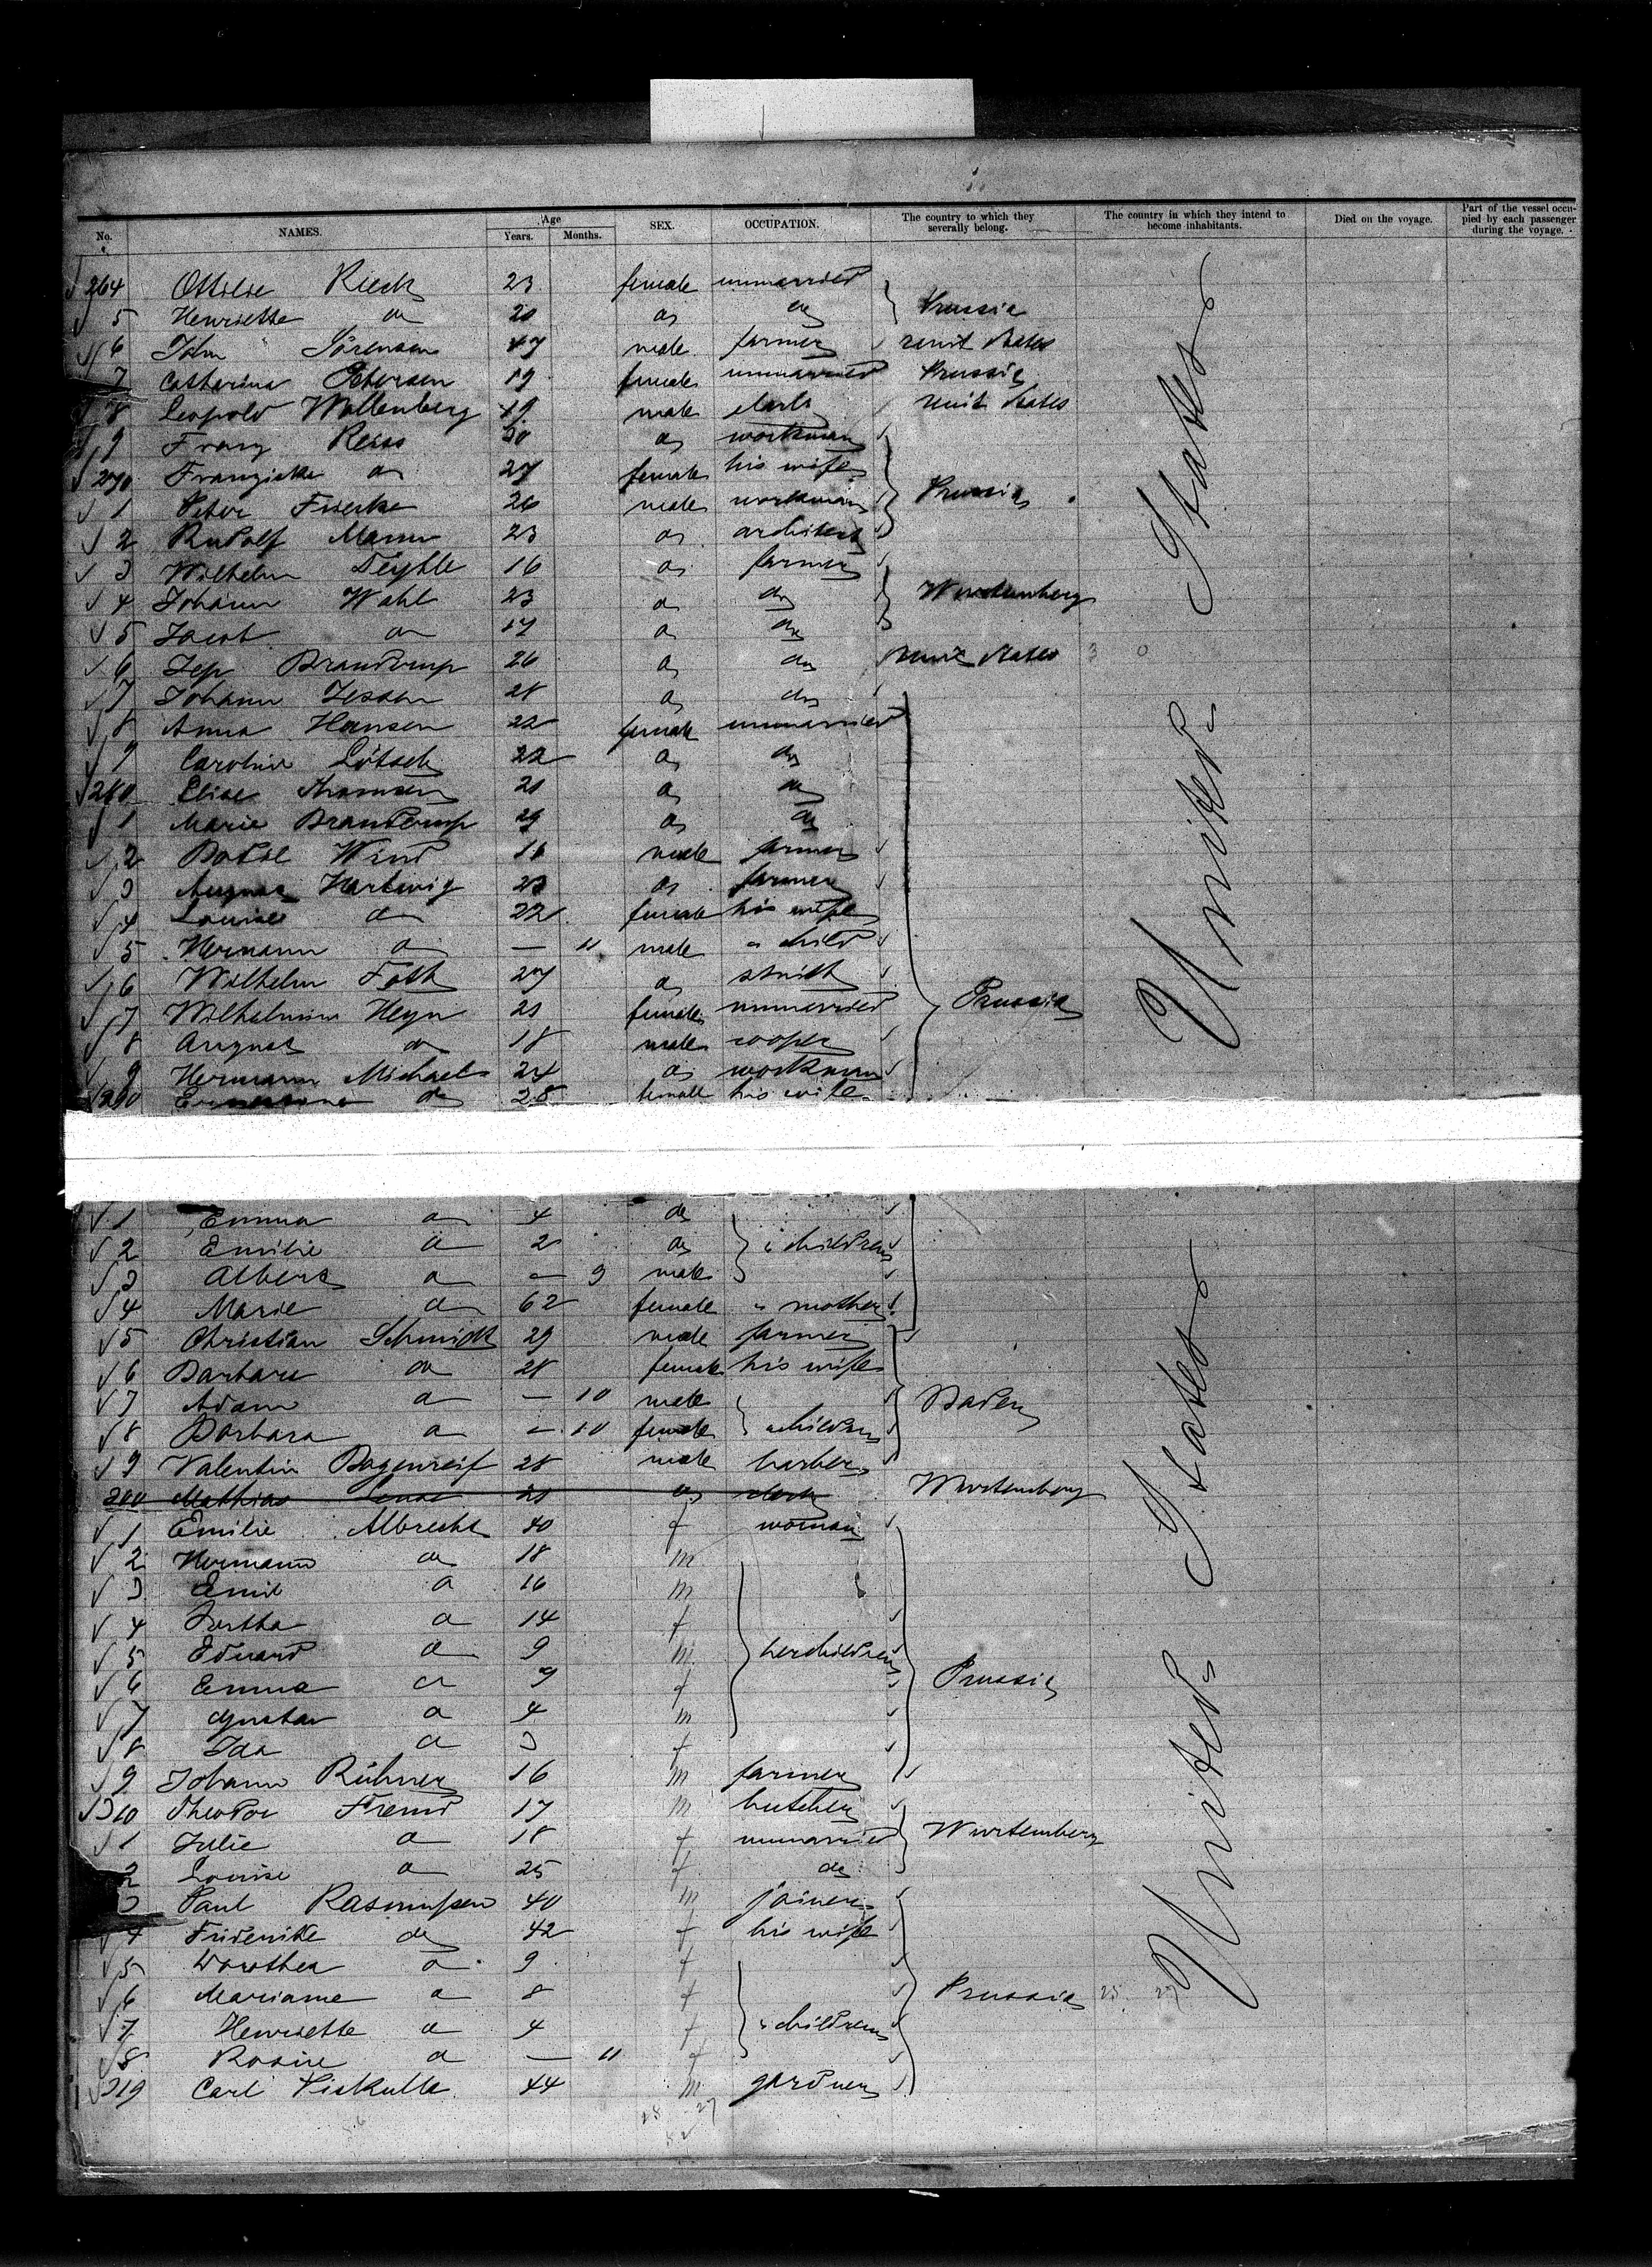 No. NAMES. Age Years. Months. SEX. OCCUPATION. The country to which they severally belong. The country in which they intend to become inhabitants. Died on the voyage. Part of the vessel occupied by each passenger during the voyage.
264 Ottilie Rieck 23 female unmarried
5 Henriette do 20 do do Prussia
6 John Sörensen 47 male farmer unit States
7 Catharina Petersen 19 female unmarried Prussia
8 Leopold Wollenberg 49 male clerk unit States
9 Franz Reiss 30 do workman
270 Franziska do 27 female his wife
1 Peter Frierke 26 male workman Prussia
2 Rudolf Mann 23 do architect
3 Wilhelm Teyhle 16 do farmer
4 Johann Wahl 23 do do Wurtemberg
5 Jacob do 17 do do
6 Jep Brandrup 26 do do unit States
7 Johann Jessen 28 do do
8 Anna Hansen 22 female unmarried
9 Caroline Lötsch 22 do do
280 Elise Thomsen 20 do do
1 Marie Brandrup 29 do do
2 Wind 16 male farmer
3 August Hartwig 23 do farmer
4 Louise do 22 female his wife
5 Hermann do — 11 male " child
6 Wilhelm Foth 27 do smith
7 Wilhelmine Heyn 21 female unmarried Prussia
8 August do 18 male cooper
9 Hermann Michael 24 do workman
290 do 28 female his wife
1 Emma do 4 do
2 Emilie do 2 do " children
3 Albert do — 9 male
4 Marie do 62 female " mother
5 Christian Schmidt 29 male farmer
6 Barbara do 28 female his wife
7 Adam do — 10 male Baden
8 Barbara do — 10 female " children
9 Valentin Bogenreif 28 male barber
300 Mathias 20 do clerk Wurtemberg
1 Emilie Albrecht 40 f woman
2 Hermann do 18 m
3 Emil do 16 m
4 Bertha do 14 f
5 Eduard do 9 m her children
6 Emma do 9 f Prussia
7 Gustav do 4 m
8 Ida do 3 f
9 Johann Rühner 16 m farmer
310 Theodor Fremd 17 m butcher
1 Julie do 18 f unmarried Wurtemberg
2 Louise do 25 f do
3 Paul Rasmussen 40 m joiner
4 Friderike do 42 f his wife
5 Dorothea do 9 f
6 Mariane do 8 f Prussia
7 Henriette do 4 f " children
8 Rosine do — 11 f
319 Carl Piskulla 44 m gardner
United States
United States